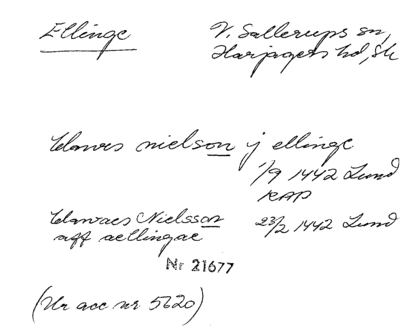 Ellinge
V. Sallerups sn,
Harjagers hd, Sk
klawes nielson j ellinge
1/9 1442 Lund
RAP
klawaes Nielsson
aff aellingae
23/2 1442 Lund
Nr 21677
(Ur acc nr 5620)